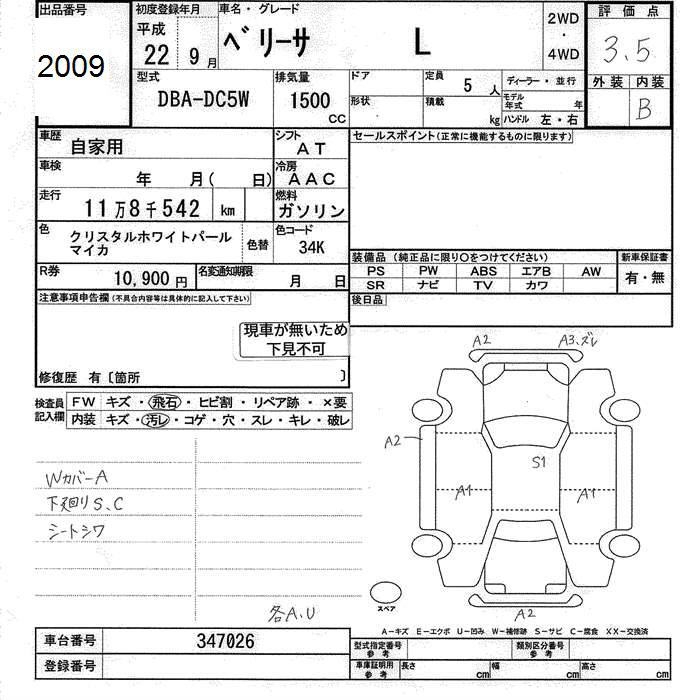 出品番号
2009
初度登録年月
平成
22 9月
車名・グレード
ベリーサ L
2WD
・
4WD
評価点
3.5
外装 内装
B
型式
DBA-DC5W
排気量
1500
CC
ドア
定員
5 人
形状
積載
kg
ディーラー・並行
モデル年式 年
ハンドル 左・右
車歴
自家用
シフト
AT
車検
年 月( 日)
冷房
AAC
走行
11万8千542 km
燃料
ガソリン
色
クリスタルホワイトパール
マイカ
色替
色コード
34K
R券
10,900円
名変通知期限
月 日
セールスポイント(正常に機能するものに限ります)
装備品 (純正品に限り○をつけてください)
PS PW ABS エアB AW
SR ナビ TV カワ
新車保証書
有・無
後日品
注意事項申告欄(不具合内容等は具体的に記入して下さい)
現車が無いため
下見不可
修復歴 有〔箇所 〕
検査員
記入欄
FW キズ・飛石・ヒビ割・リペア跡・×要
内装 キズ・汚レ・コゲ・穴・スレ・キレ・破レ
Wカバー A
下廻り S、C
シートシワ
各A、U
A2 A3、ズレ
A2
S1
A1 A1
A2
スペア
A-キズ E-エクボ U-凹み W-補修跡 S-サビ C-腐食 XX-交換済
車台番号
347026
登録番号
型式指定番号
参考
類別区分番号
参考
車庫証明用
参考
長さ cm
幅 cm
高さ cm